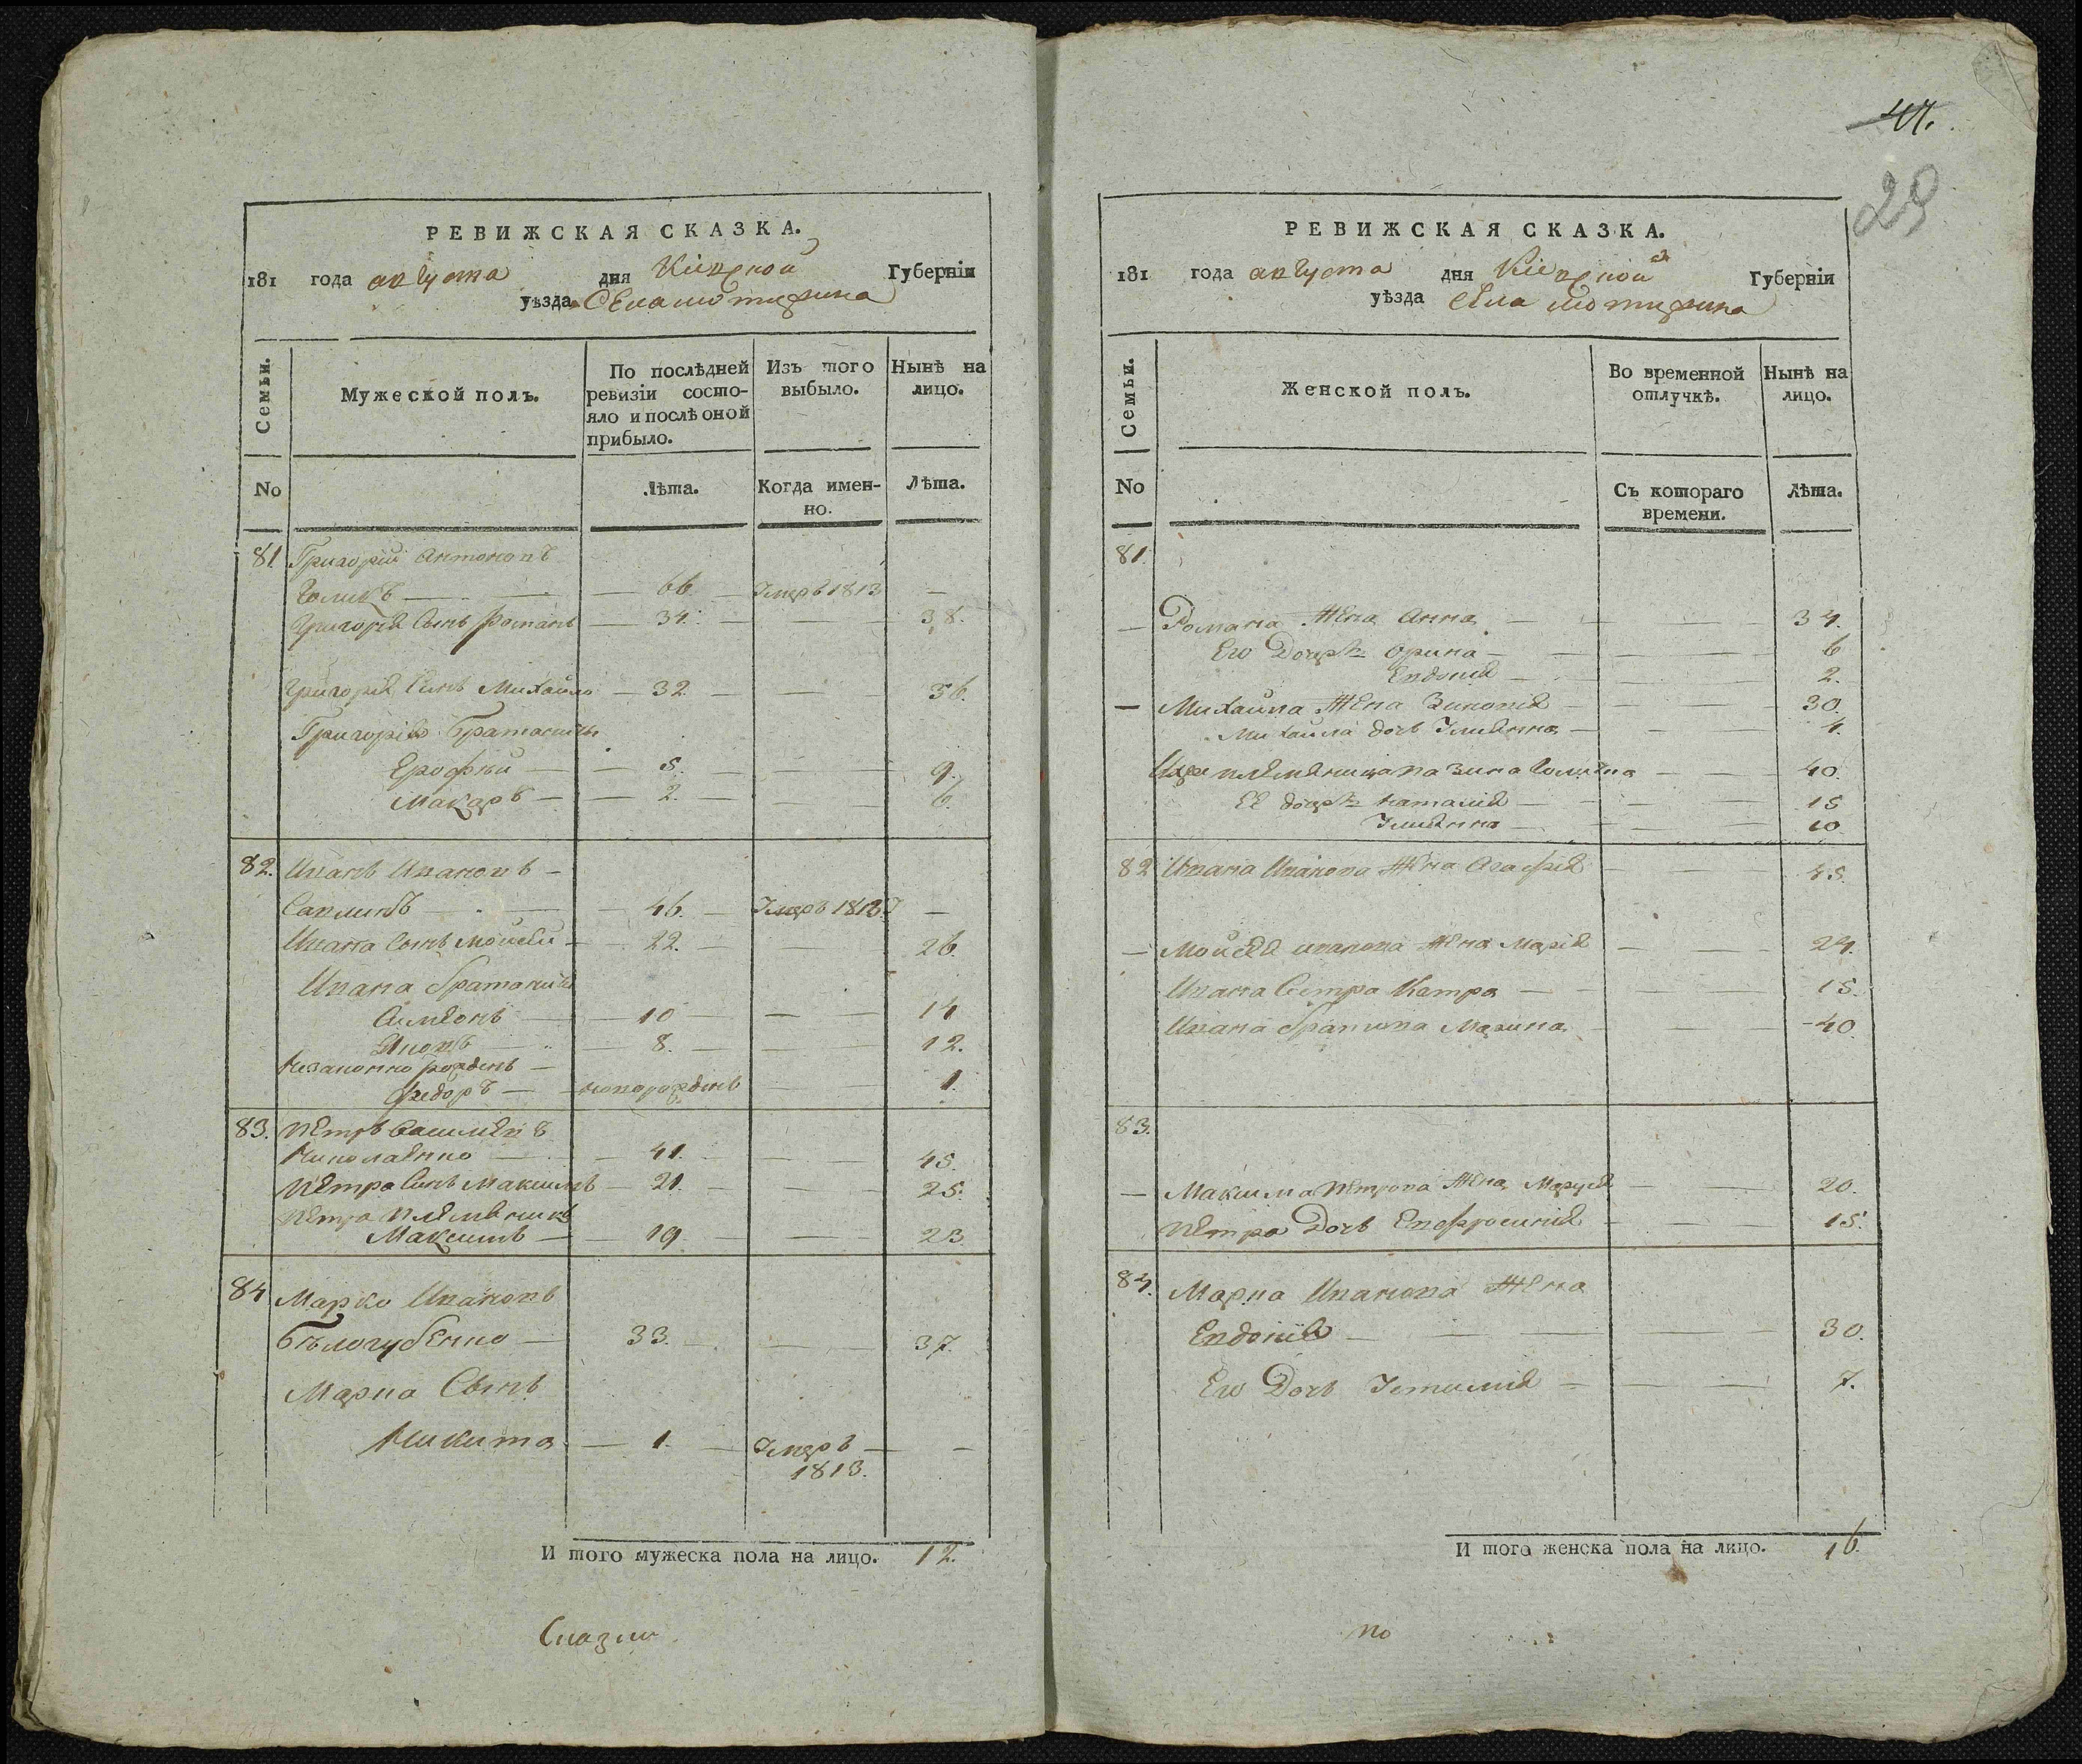 РЕВИЖСКАЯ СКАЗКА.
181 года августа дня Кіевской Губерніи
уѣзда Села Мотижина
Семьи.
Мужеской полъ.
По послѣдней ревизіи состояло и послѣ оной прибыло.
Изъ того выбыло.
Нынѣ на лицо.
No
Лѣта.
Когда именно.
Лѣта.
81 Григорій Антоновъ
Голикъ — 66 — Умеръ 1813 —
Григорія Сынъ Романъ — 34. — 38.
Григорія Сынъ Михайло — 32. — 36.
Григорія Братаничи
Ерофѣй — 5. — 9.
Макаръ — 2. — 6.
82. Иванъ Ивановъ —
46. — Умеръ 1813 —
Ивана Сынъ Мойсей — 22. — 26.
Ивана братаничи
Симеонъ — 10 — 14
Яковъ — 8. — 12.
Незаконно рожденъ —
Федоръ — новорожденъ 1.
83. Петръ
Николаенко — 41. — 45.
Петра Сынъ Максимъ — 21. — 25.
Петра Племянникъ
Максимъ — 19 — 23.
84 Марко Ивановъ
Бѣлогубенко — 33. — 37.
Марка Сынъ
Никита — 1. — Умеръ — —
1813.
И того мужеска пола на лицо. 12.
41.
29
РЕВИЖСКАЯ СКАЗКА.
181 года августа дня Кіевской Губерніи
уѣзда Села Мотижина
Семьи.
Женской полъ.
Во временной отлучкѣ.
Нынѣ на лицо.
No
Съ котораго времени.
Лѣта.
81.
— Романа Жена Анна — 34.
Его Дочери Орина — 6
Евдокія — 2.
— Михайла Жена Зиновія — 30.
Михайла дочь Уліянна — 4.
40.
Ее дочери Наталія — 15
Уліянна — 10
82 Ивана Иванова Жена Агафія 45.
— Мойсея Иванова Жена Марія — 24.
Ивана Сестра Катра — 15.
Ивана Марина — 40
83.
— Максима Петрова Жена — 20.
Петра Дочь Евфросинія — 15.
84. Марка Иванова Жена
Евдокія — 30.
Его Дочь — 7.
И того женска пола на лицо. 16.
по